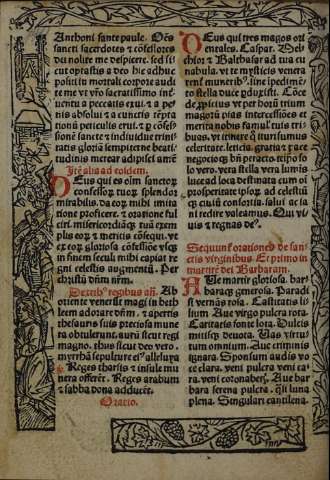 Anthoni sancte paule. Oēs
sancti sacerdotes ⁊ cōfessores
dei nolite me despicere. sed si
cut optastis a deo hic adhuc
positi in mortali corpore audi
te me vt vr̄o sacratissimo int
uentu a peccatis erui. ⁊ a pe
nis absolui ⁊ a cunctis tēpta
tionū periculis erui. ⁊ p cōfes
sionē sancte ⁊ indiuidue trini
tatis gloriā sempiterne beati
tudinis merear adipisci amē
Itē alia ad eosdem.
Deus qui es oīm sanctorū
confessorū tuorū splendor
mirabilis. da eorū mihi imita
tione proficere. ⁊ oratione ful
ciri. misericordiāqꝫ tuā exem
plis eorū ⁊ meritis cōsequi. vt
ex eorū gloriosa cōfessiōe vscꝫ
in finem seculi mihi capiat re
gni celestis augmentū. Per
christū dn̄m nr̄m.
De tribꝰ regibus añ. Ab
oriente venerūt magi in beth
leem adorare dn̄m. ⁊ apertis
thesauris suis preciosa mune
ra obtulerunt. aurū sicut regi
magno. thus sicut deo vero.
myrrhā sepulture eiꝰ alleluya
Reges tharsis ⁊ insule mu
nera offerēt. Reges arabum
⁊ sabba dona adducēt.
Oratio.
Deus qui tres magos ori
entales. Caspar. Mel
chior ⁊ Balthasar ad tua cu
nabula. vt te mysticis venera
rent muneribꝰ. sine īpedimē
to stella duce ꝑduxisti. Cōce
de ꝓpicius vt per horū trium
magorū pias intercessiōes et
merita nobis famul tuis tri
buas. vt itinere q̄ ituri sumus
celeritate. leticia. gratia ⁊ pace
negocijsqꝫ bn̄ peractis. ipso so
lo vero. vera stella. vera luminis
luce ad loca destinata cum oī
prosperitate ipsorꝫ ad celestiū
qꝫ ciuiū confortia. salui ac la
ti redire valeamus. Qui vi
uis ⁊ regnas de.
Sequun̄t orationes de san
ctis virginibus. Et primo in
martire dei Barbaram.
Aue martir gloriosa. bar
bara qꝫ generosa. Paradi
si vernās rosa. Castitatis li
lium. Aue virgo pulcra rota.
Caritatis fonte lota. Dulcis
mitis qꝫ deuota. Uas virtu
tum omnium. Aue criminis
ignara. Sponsum audis vo
ce clara. veni pulcra veni ca
ra. veni coronaberis. Aue bar
bara serena pulcra. q̄si luna
plena. Singulari cantilena.